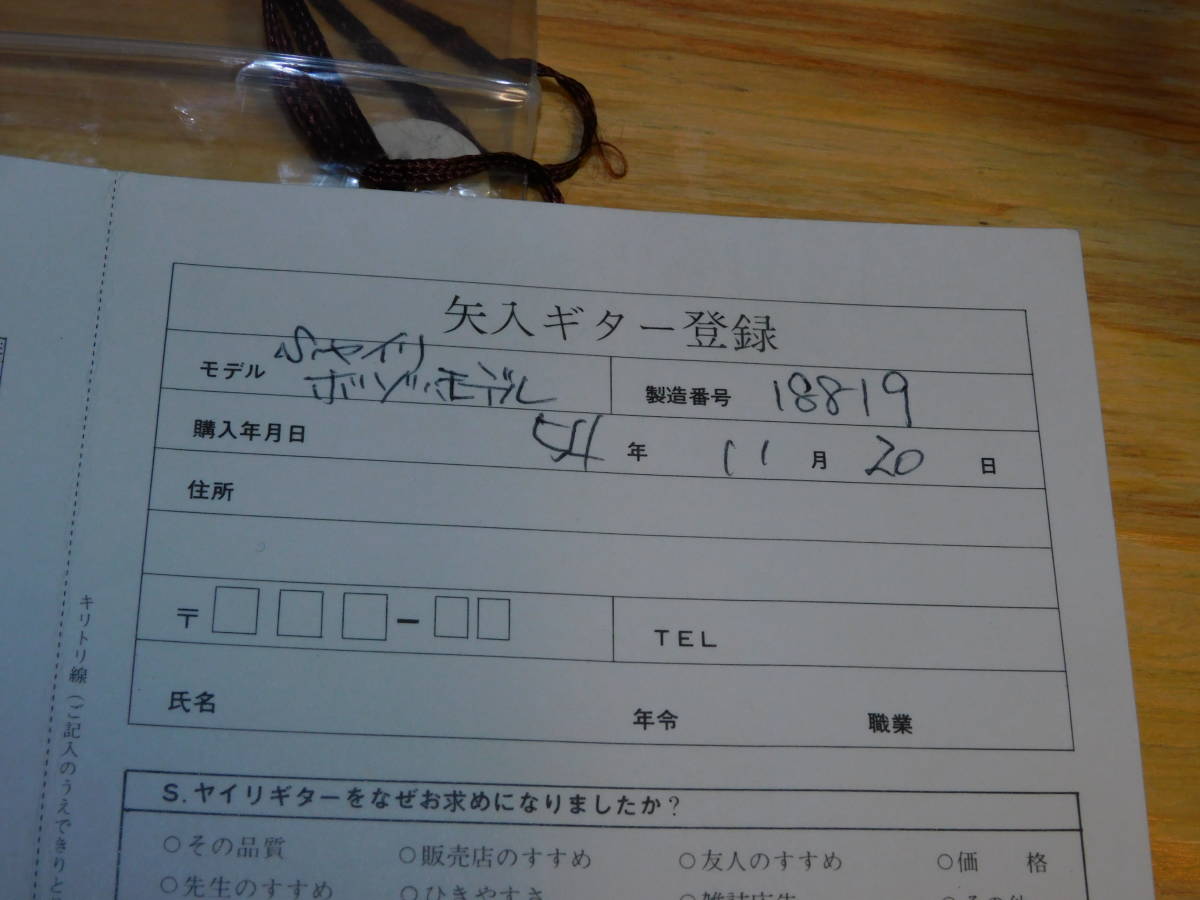 矢入ギター登録
モデル Sヤイリ
ボゾ・モデル
製造番号 18819
購入年月日 54 年 11 月 20 日
住所
〒 -
TEL
氏名 年令 職業
キリトリ線（ご記入のうえできりと
S.ヤイリギターをなぜお求めになりましたか？
○その品質 ○販売店のすすめ ○友人のすすめ ○価 格
○先生のすすめ ○ひきやすさ ○雑誌広告 ○その他